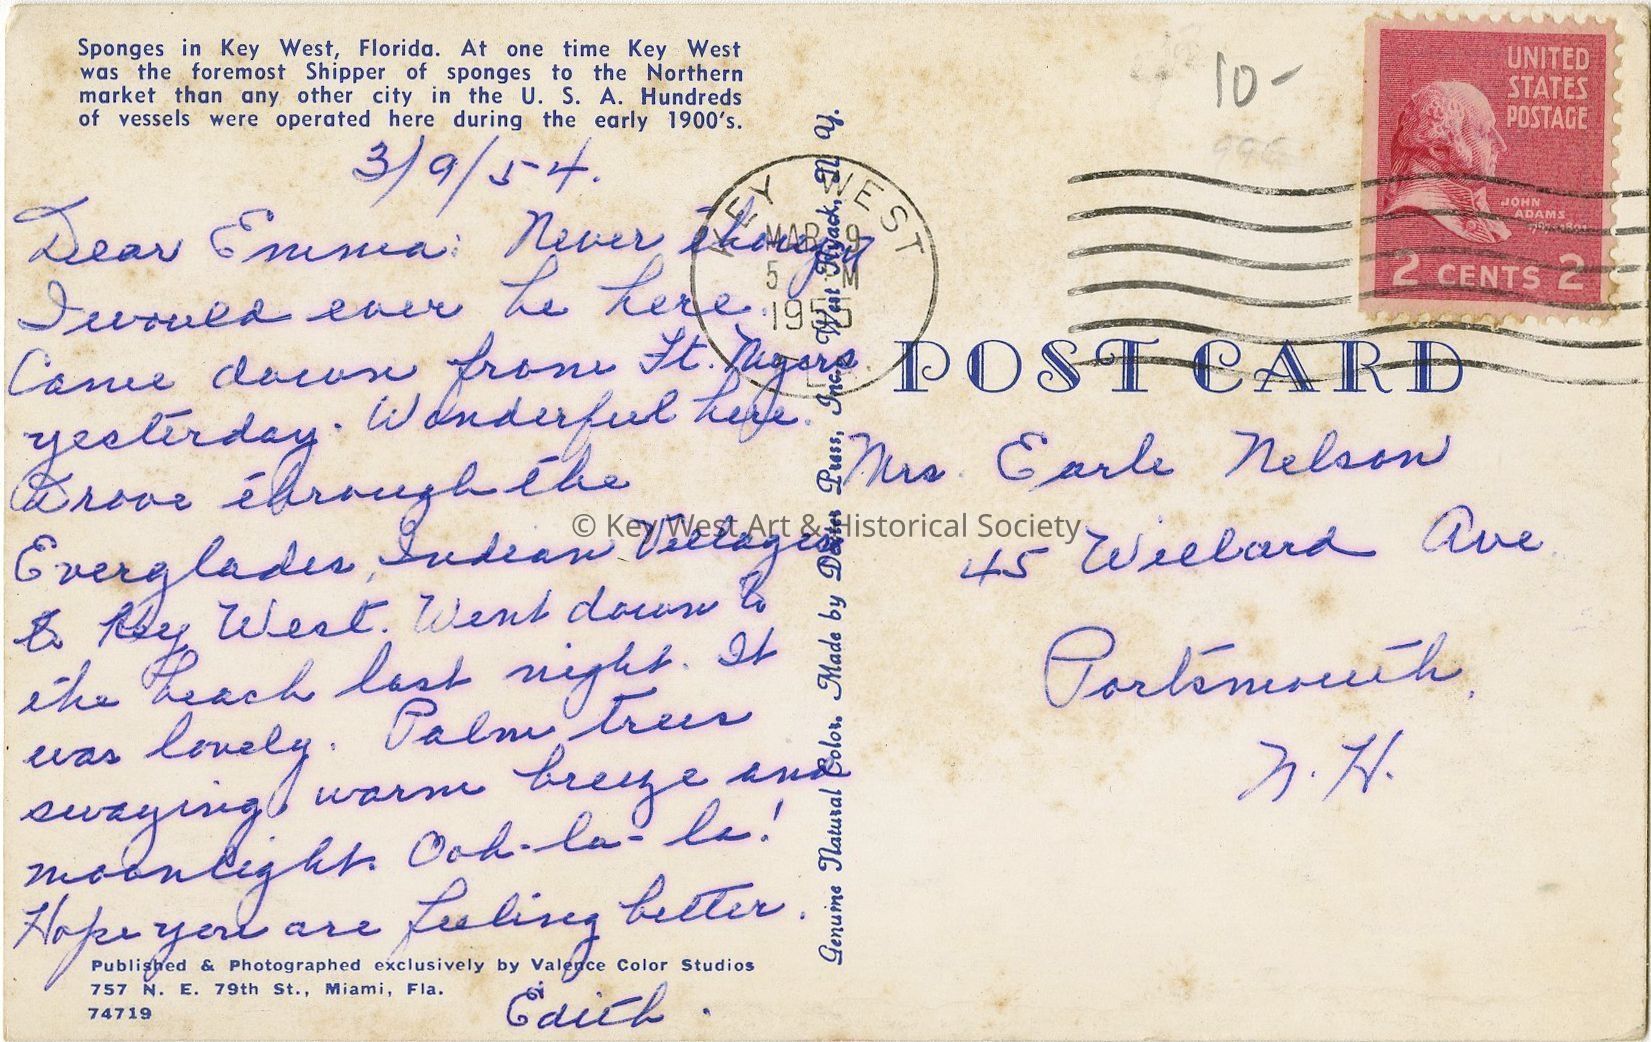 Sponges in Key West, Florida. At one time Key West
was the foremost Shipper of sponges to the Northern
market than any other city in the U. S. A. Hundreds
of vessels were operated here during the early 1900's.
3/9/54.
Dear Emma: Never
I would ever be here.
Came down from Ft. Myers
yesterday. Wonderful here.
Drove through the
Everglades, Indian Villages
to Key West. Went down to
the beach last night. It
was lovely. Palm trees
swaying, warm breeze and
moonlight. Ooh-la-la!
Hope you are feeling better.
Edith.
Published & Photographed exclusively by Valence Color Studios
757 N. E. 79th St., Miami, Fla.
74719
Genuine Natural Color. Made by Dexter Press, Inc., West Nyack, N. Y.
KEY WEST
MAR 9
5 M
1955
10-
UNITED
STATES
POSTAGE
JOHN
ADAMS
2 CENTS 2
POST CARD
Mrs. Earle Nelson
45 Willard Ave.
Portsmouth,
N. H.
© Key West Art & Historical Society